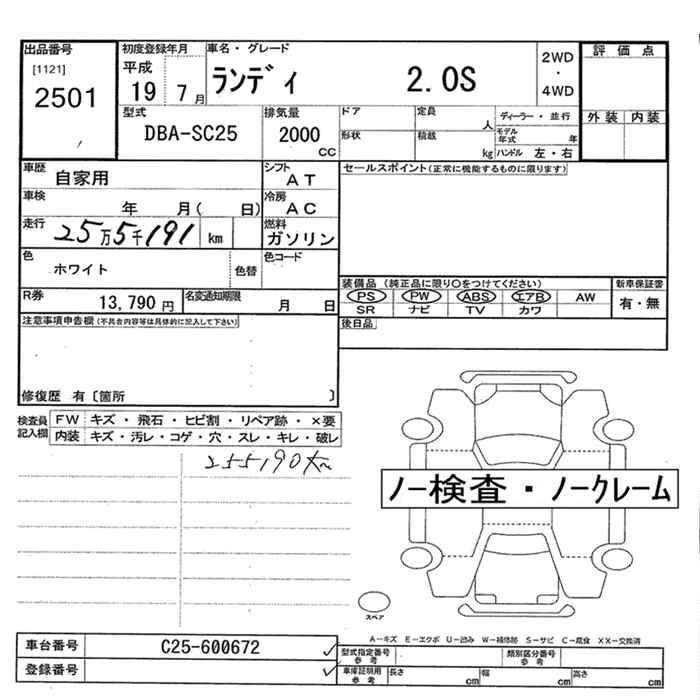 出品番号
[1121]
2501
初度登録年月
平成
19 7月
車名・グレード
ランディ 2.0S
2WD
・
4WD
評価点
外装 内装
型式
DBA-SC25
排気量
2000
CC
ドア
形状
定員
人
積載
kg
ディーラー・並行
モデル年式 年
ハンドル 左・右
車歴
自家用
シフト
AT
車検
年 月( 日)
冷房
AC
走行
25万5千191 km
燃料
ガソリン
セールスポイント(正常に機能するものに限ります)
色
ホワイト
色替
色コード
R券
13,790 円
名変通知期限
月 日
装備品 (純正品に限り○をつけてください)
PS PW ABS エアB AW
SR ナビ TV カワ
新車保証書
有・無
後日品
注意事項申告欄 (不具合内容等は具体的に記入して下さい)
修復歴 有〔箇所 〕
検査員
記入欄
FW キズ・飛石・ヒビ割・リペア跡・×要
内装 キズ・汚レ・コゲ・穴・スレ・キレ・破レ
255190km
ノー検査・ノークレーム
スペア
A－キズ E－エクボ U－凹み W－補修跡 S－サビ C－腐食 XX－交換済
車台番号
C25-600672
登録番号
型式指定番号
参考
類別区分番号
参考
車庫証明用
参考
長さ cm
幅 cm
高さ cm